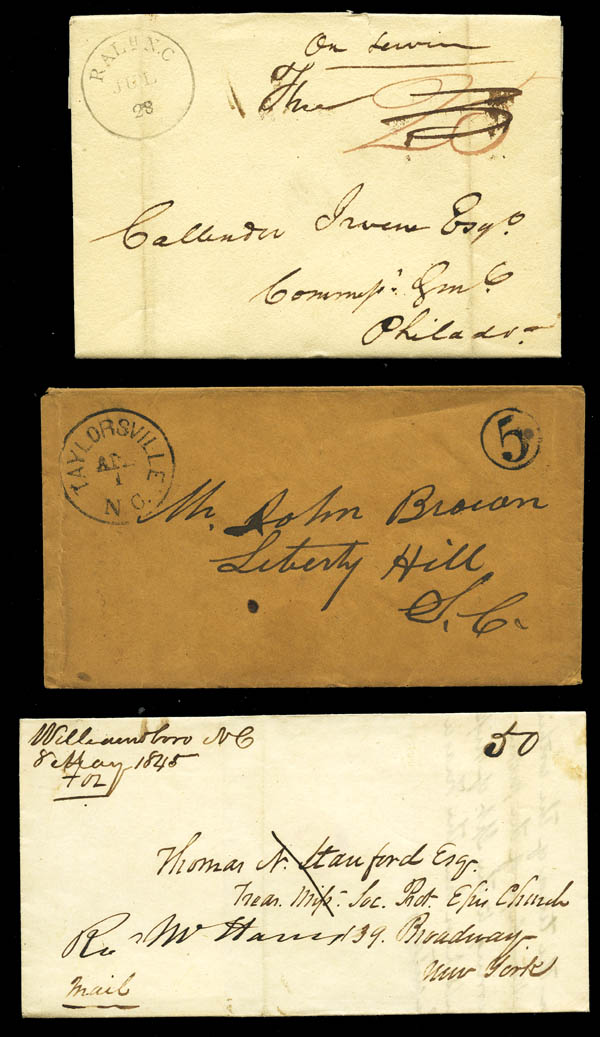 RALH N.C
JUL
28
On
25
Callender Irvine Esqr.
Commissy. Gnl.
Philada.
TAYLORSVILLE
APL
1
N.C.
5
Mr. John Brown
Liberty Hill
S.C.
Williamsboro NC
8 May 1845
50
Thomas N. Stanford Esqr.
Treas. Miss. Soc. Prot. Epis Church
139. Broadway
New York
Mail